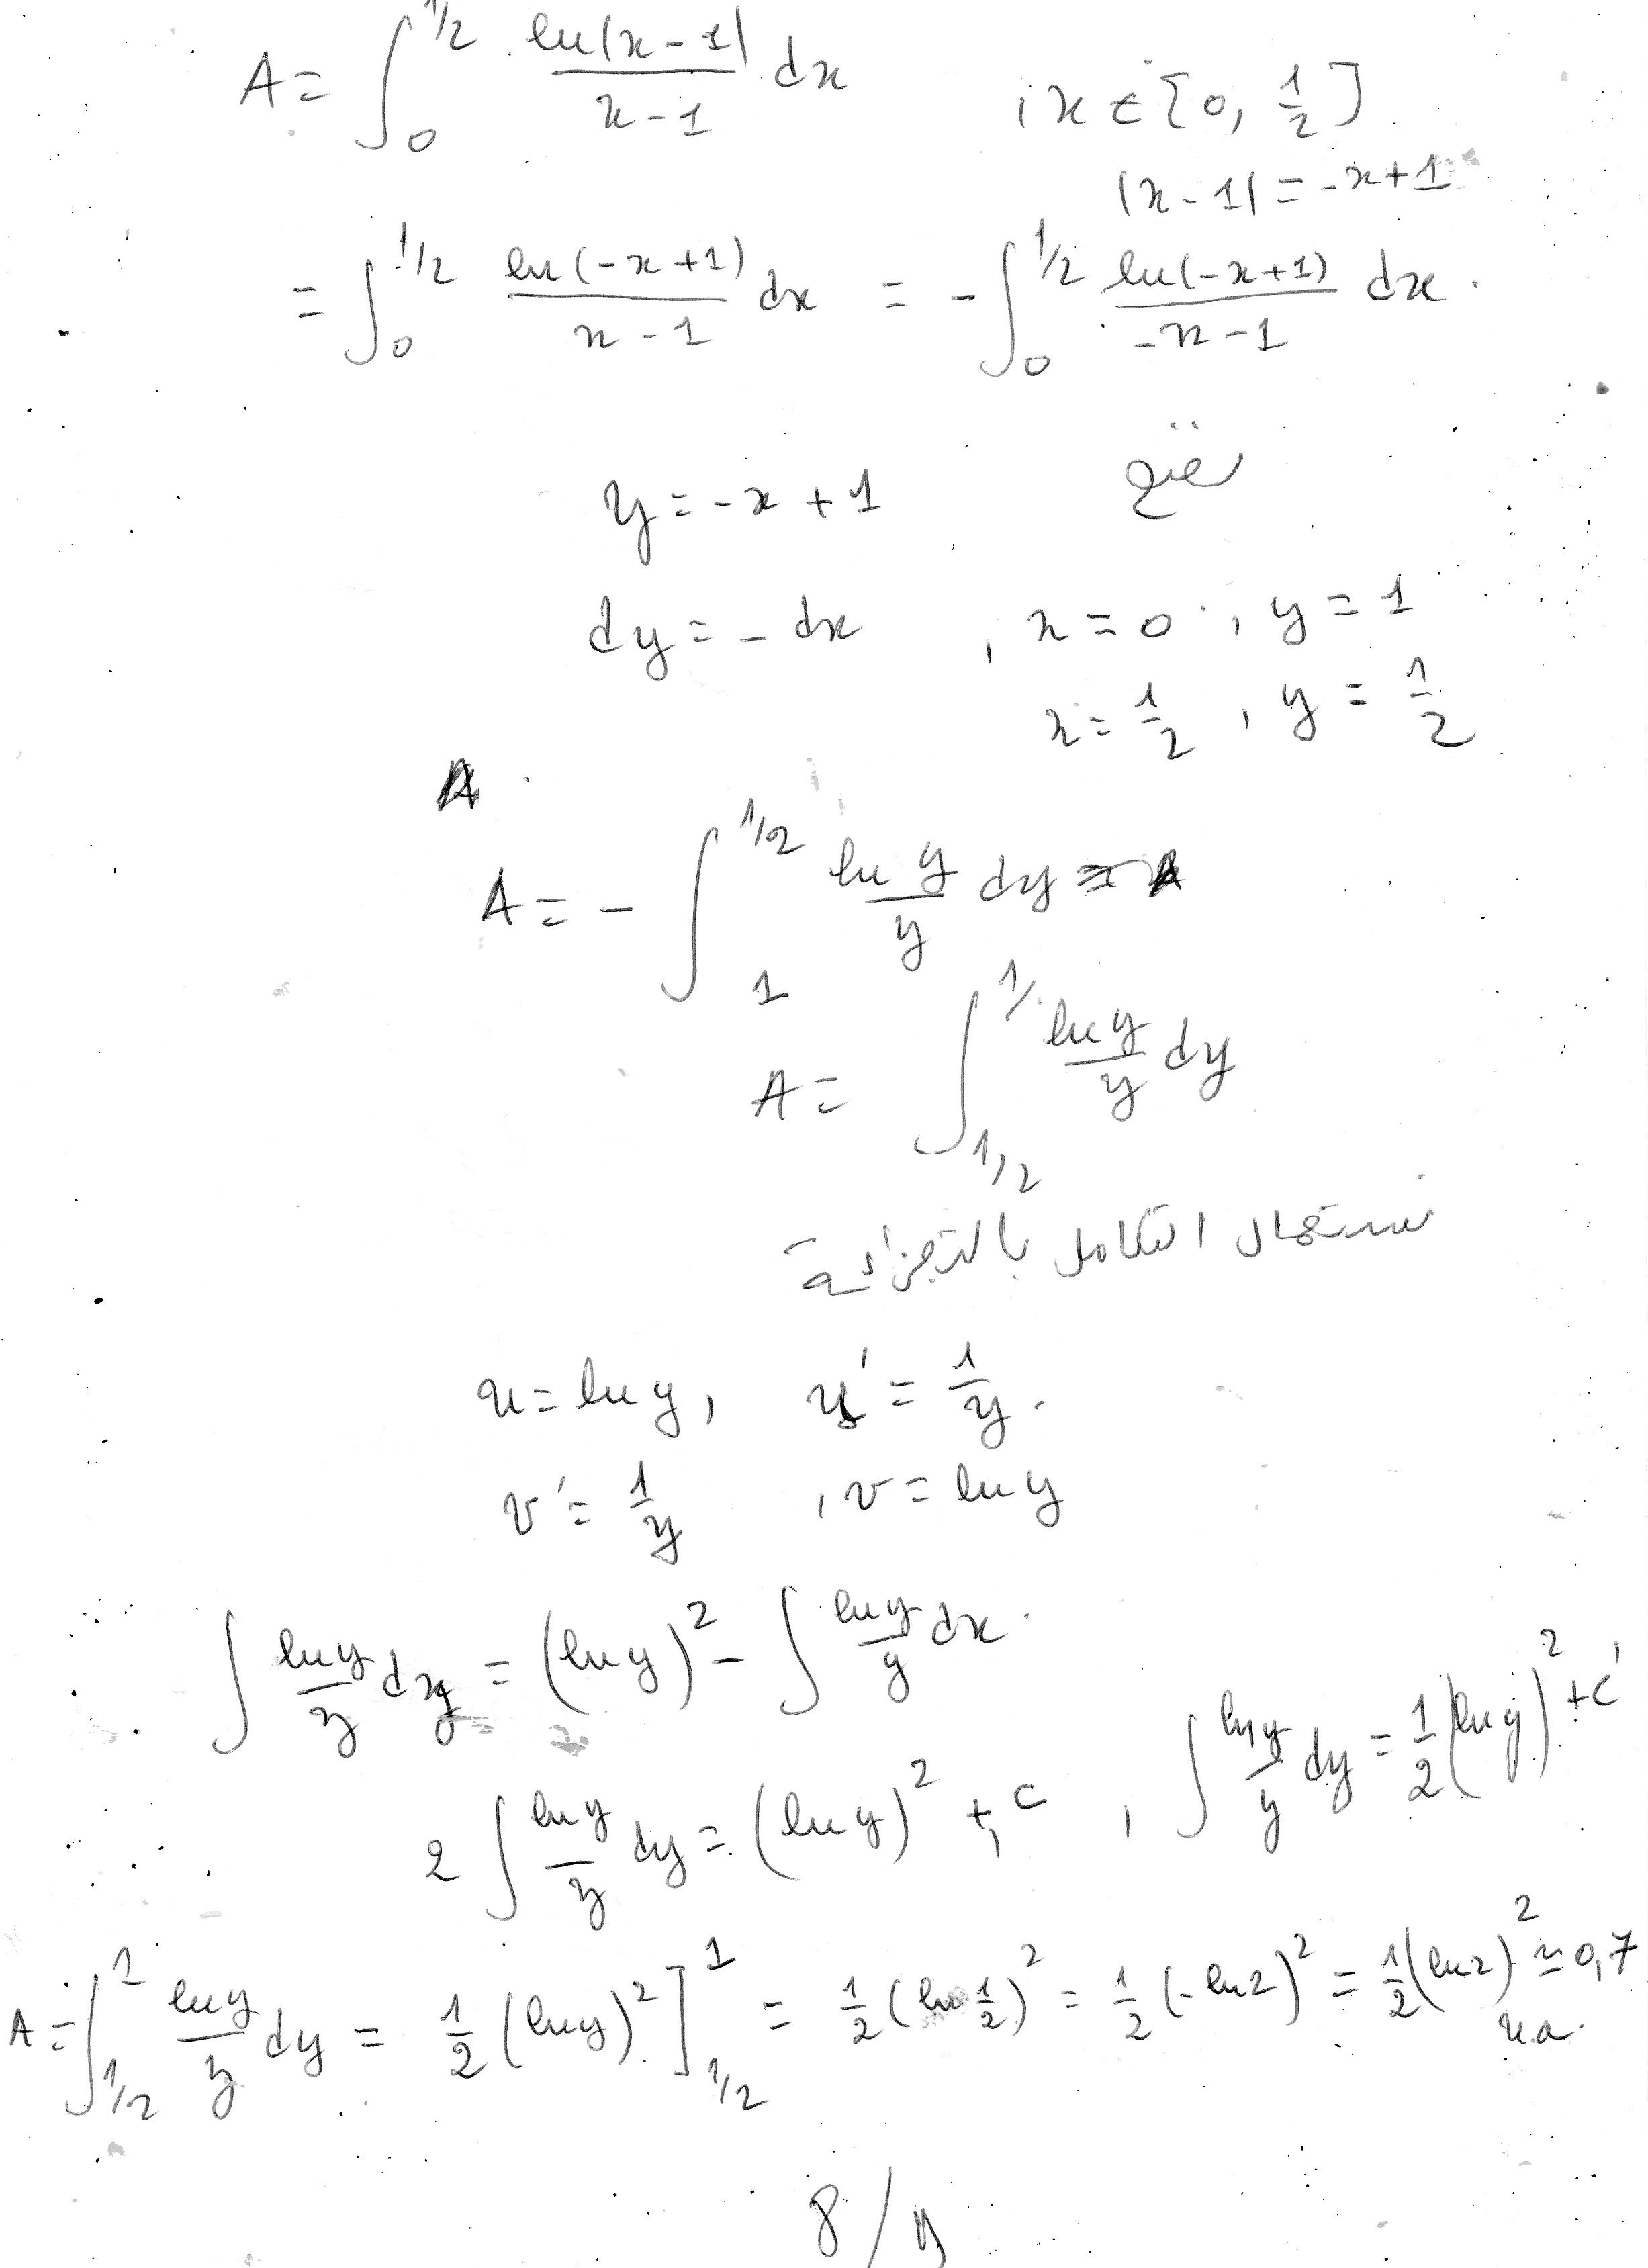 A = ∫₀^{1/2} ln|x-1| / x-1 dx , x ∈ [0, 1/2]
|x-1| = -x+1
= ∫₀^{1/2} ln(-x+1) / x-1 dx = - ∫₀^{1/2} ln(-x+1) / -x-1 dx.
y = -x + 1 نضع
dy = - dx , x = 0 , y = 1
x = 1/2 , y = 1/2
A = - ∫₁^{1/2} ln y / y dy =
A = ∫_{1/2}^{1} ln y / y dy
نستعمال التكامل بالتجزئة
u = ln y, u' = 1/y.
v' = 1/y , v = ln y
∫ ln y / y dy = (ln y)² - ∫ ln y / y dx.
2 ∫ ln y / y dy = (ln y)² + c , ∫ ln y / y dy = 1/2 (ln y)² + c'
A = ∫_{1/2}^{1} ln y / y dy = 1/2 (ln y)² ]_{1/2}^{1} = 1/2 (ln 1/2)² = 1/2 (-ln 2)² = 1/2 (ln 2)² ≃ 0,7
u.a.